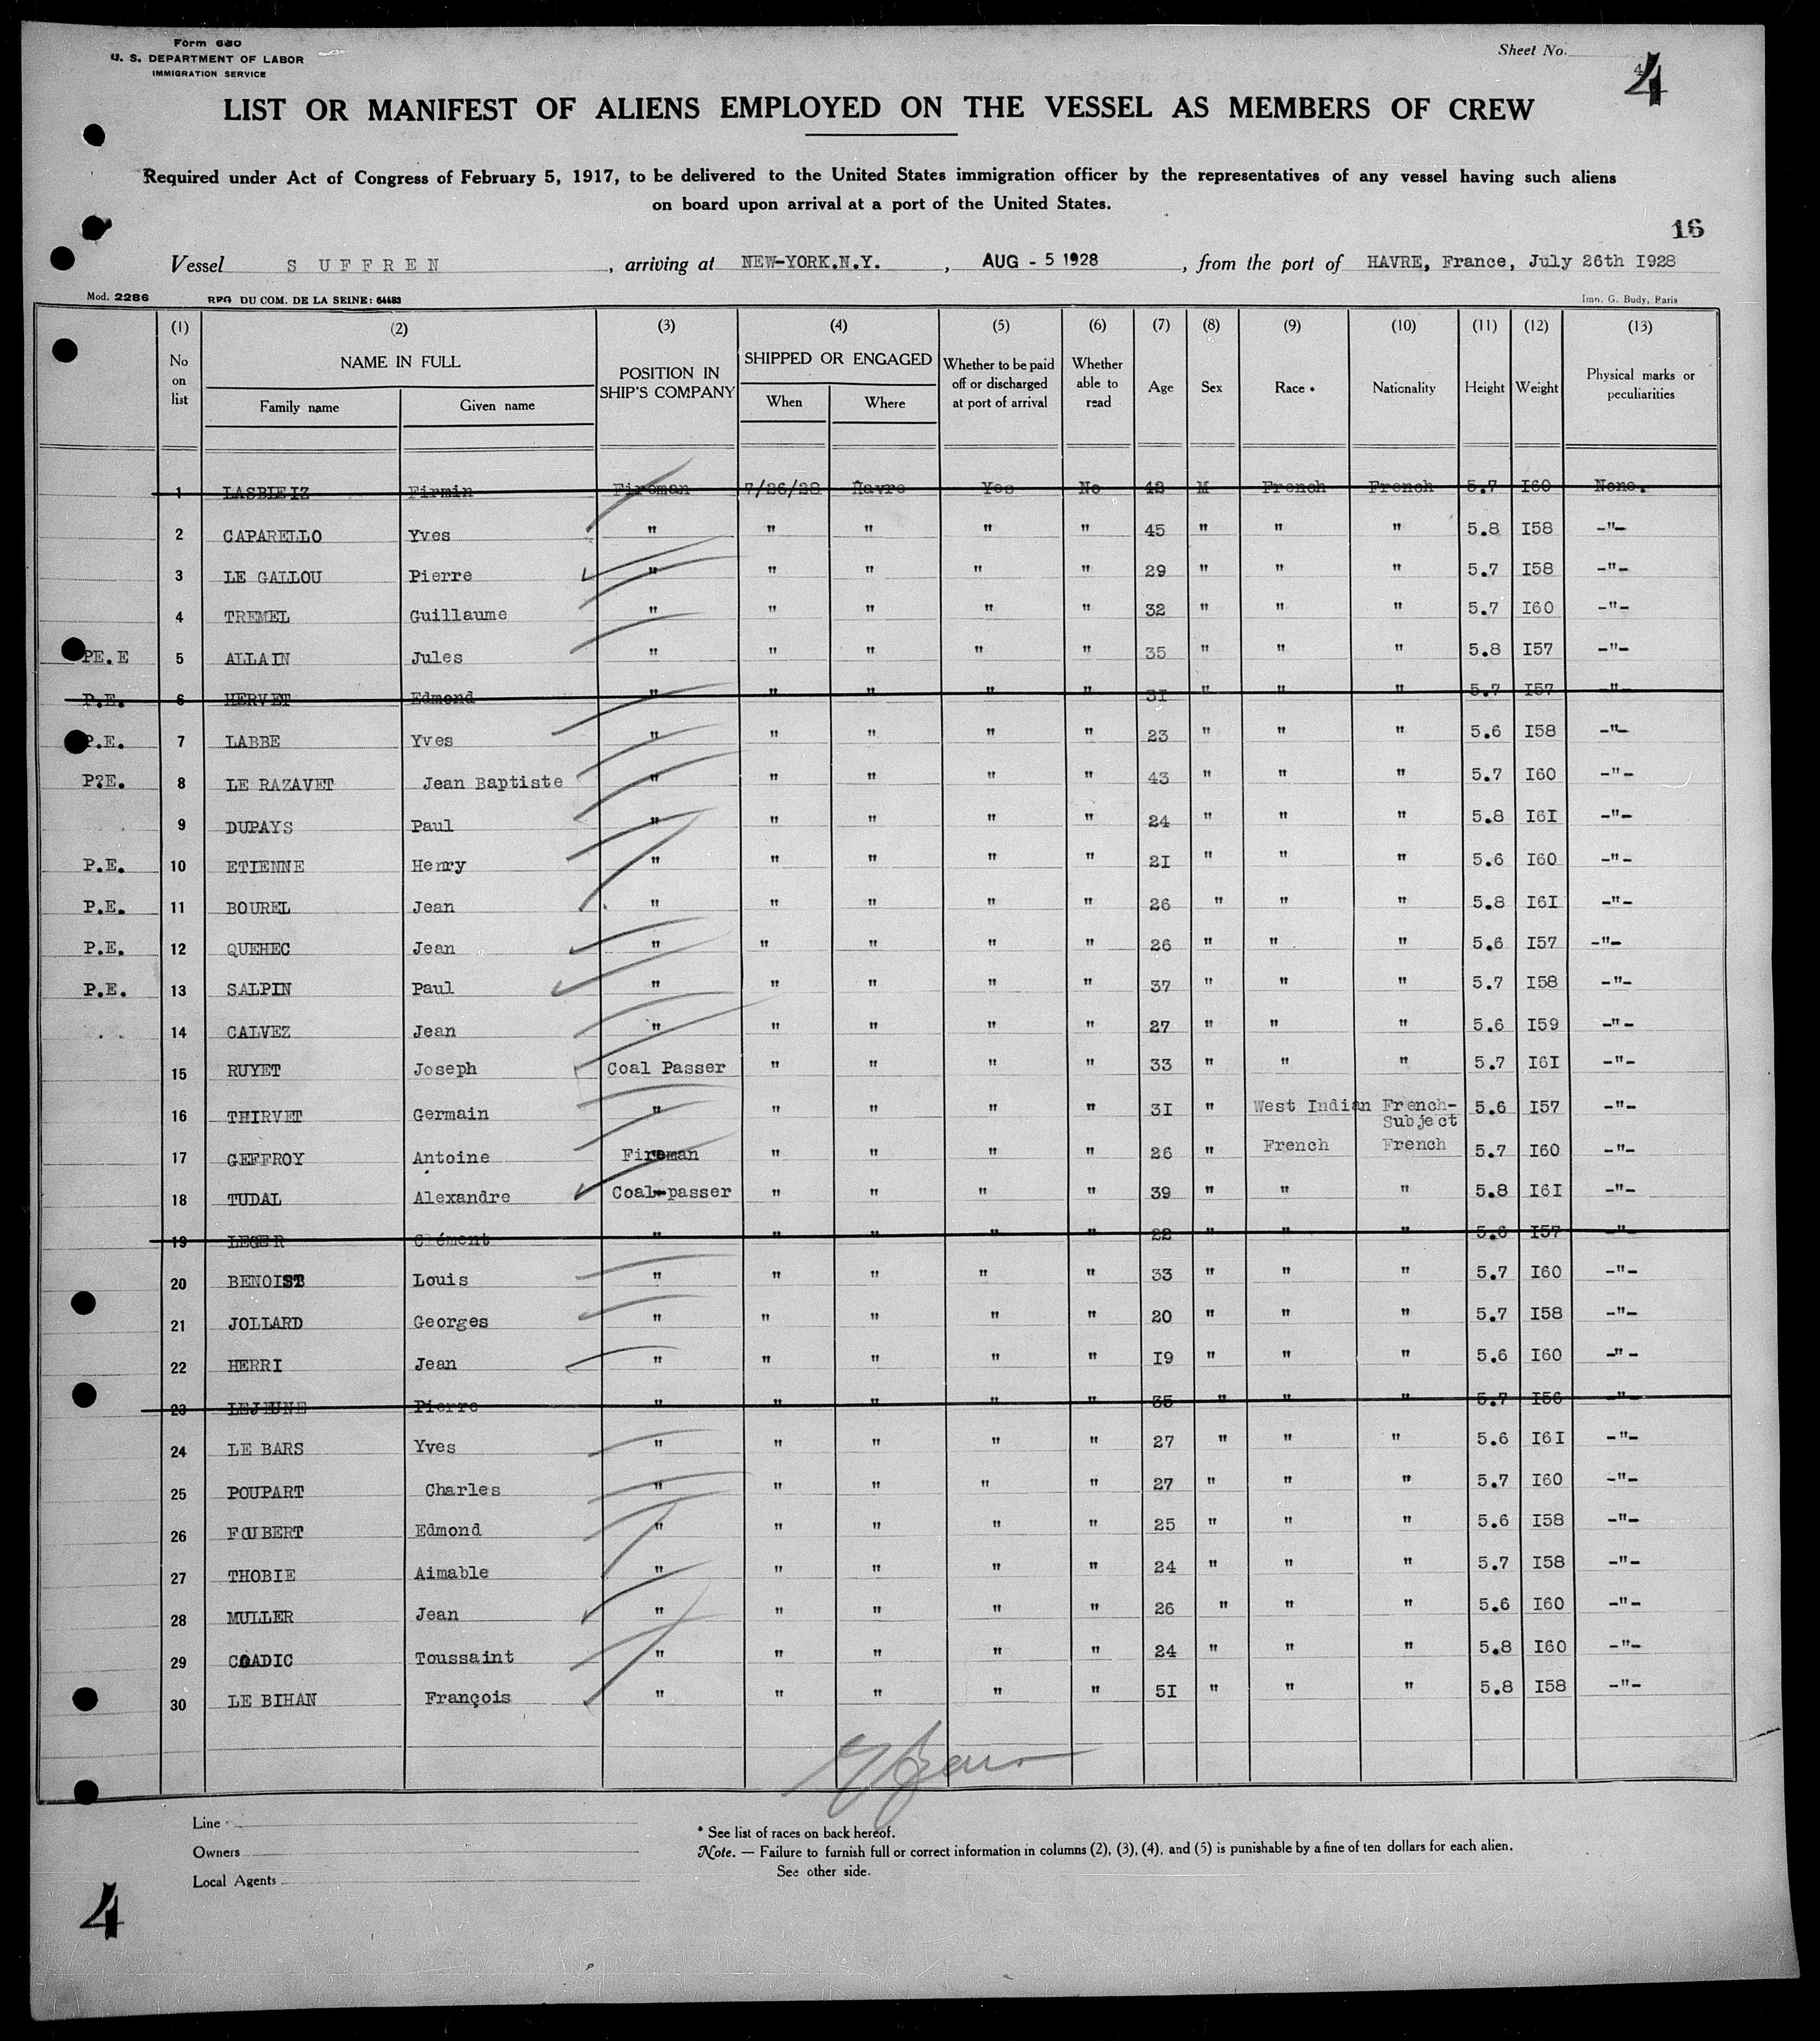 Form 680
U. S. DEPARTMENT OF LABOR
IMMIGRATION SERVICE
Sheet No.
4
4
LIST OR MANIFEST OF ALIENS EMPLOYED ON THE VESSEL AS MEMBERS OF CREW
Required under Act of Congress of February 5, 1917, to be delivered to the United States immigration officer by the representatives of any vessel having such aliens
on board upon arrival at a port of the United States.
16
Vessel S U F F R E N , arriving at NEW-YORK.N.Y. , AUG - 5 1928 , from the port of HAVRE, France, July 26th I928
Mod. 2286 REG DU COM. DE LA SEINE: 64483 Imn. G. Budy, Paris
(1) (2) (3) (4) (5) (6) (7) (8) (9) (10) (11) (12) (13)
No on list NAME IN FULL Family name Given name POSITION IN SHIP'S COMPANY SHIPPED OR ENGAGED When Where Whether to be paid off or discharged at port of arrival Whether able to read Age Sex Race * Nationality Height Weight Physical marks or peculiarities
1 LASBLEIZ Firmin Fireman 7/26/28 Havre Yes No 43 M French French 5.7 I60 None.
2 CAPARELLO Yves " " " " " 45 " " " 5.8 I58 -"-
3 LE GALLOU Pierre " " " " " 29 " " " 5.7 I58 -"-
4 TREMEL Guillaume " " " " " 32 " " " 5.7 I60 -"-
PE.E 5 ALLAIN Jules " " " " " 35 " " " 5.8 I57 -"-
P.E. 6 HERVET Edmond " " " " " 3I " " " 5.7 I57 -"-
P.E. 7 LABBE Yves " " " " " 23 " " " 5.6 I58 -"-
P?E. 8 LE RAZAVET Jean Baptiste " " " " " 43 " " " 5.7 I60 -"-
9 DUPAYS Paul " " " " " 24 " " " 5.8 I6I -"-
P.E. 10 ETIENNE Henry " " " " " 2I " " " 5.6 I60 -"-
P.E. 11 BOUREL Jean " " " " " 26 " " " 5.8 I6I -"-
P.E. 12 QUEHEC Jean " " " " " 26 " " " 5.6 I57 -"-
P.E. 13 SALPIN Paul " " " " " 37 " " " 5.7 I58 -"-
14 CALVEZ Jean " " " " " 27 " " " 5.6 I59 -"-
15 RUYET Joseph Coal Passer " " " " 33 " " " 5.7 I6I -"-
16 THIRVET Germain " " " " " 3I " West Indian French-Subject 5.6 I57 -"-
17 GEFFROY Antoine Fireman " " " " 26 " French French 5.7 I60 -"-
18 TUDAL Alexandre Coal-passer " " " " 39 " " " 5.8 I6I -"-
19 LEGER Clément " " " " " 22 " " " 5.6 I57 -"-
20 BENOIST Louis " " " " " 33 " " " 5.7 I60 -"-
21 JOLLARD Georges " " " " " 20 " " " 5.7 I58 -"-
22 HERRI Jean " " " " " I9 " " " 5.6 I60 -"-
23 LEJEUNE Pierre " " " " " 35 " " " 5.7 I56 -"-
24 LE BARS Yves " " " " " 27 " " " 5.6 I6I -"-
25 POUPART Charles " " " " " 27 " " " 5.7 I60 -"-
26 FOUBERT Edmond " " " " " 25 " " " 5.6 I58 -"-
27 THOBIE Aimable " " " " " 24 " " " 5.7 I58 -"-
28 MULLER Jean " " " " " 26 " " " 5.6 I60 -"-
29 COADIC Toussaint " " " " " 24 " " " 5.8 I60 -"-
30 LE BIHAN François " " " " " 5I " " " 5.8 I58 -"-
Line
Owners
Local Agents
* See list of races on back hereof.
Note. — Failure to furnish full or correct information in columns (2), (3), (4), and (5) is punishable by a fine of ten dollars for each alien.
See other side.
4